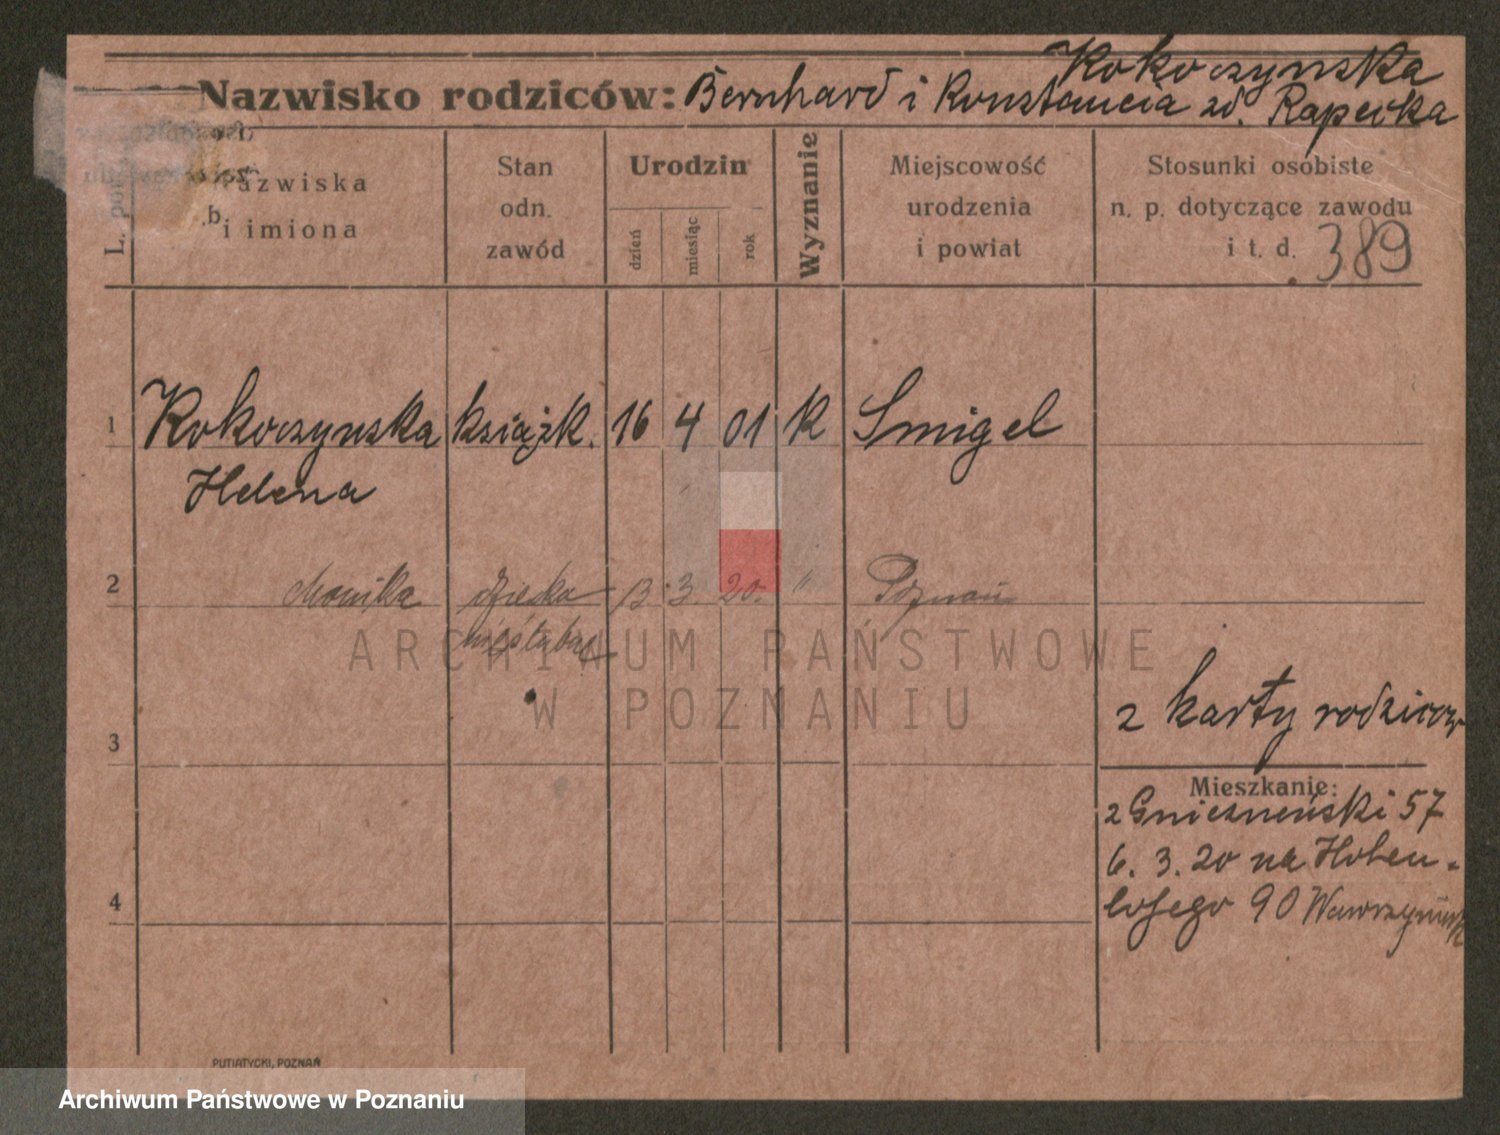 Kokoczynska
Nazwisko rodziców: Bernhard i Konstancia zd. Rapecka
L. po
b.
Nazwiska
i imiona
Stan
odn.
zawód
Urodzin
dzień
miesiąc
rok
Wyznanie
Miejscowość
urodzenia
i powiat
Stosunki osobiste
n. p. dotyczące zawodu
i t. d.
389
1 Kokoczynska książk. 16 4 01 K Smigel
Helena
2 Monika 13. 3. 20. " Poznań
ARCHIWUM PAŃSTWOWE
W POZNANIU
3
z karty rodziców
Mieszkanie:
z Gnieznenski 57
6. 3. 20 na Hohen-
lohego 90
4
PUTIATYCKI, POZNAŃ
Archiwum Państwowe w Poznaniu